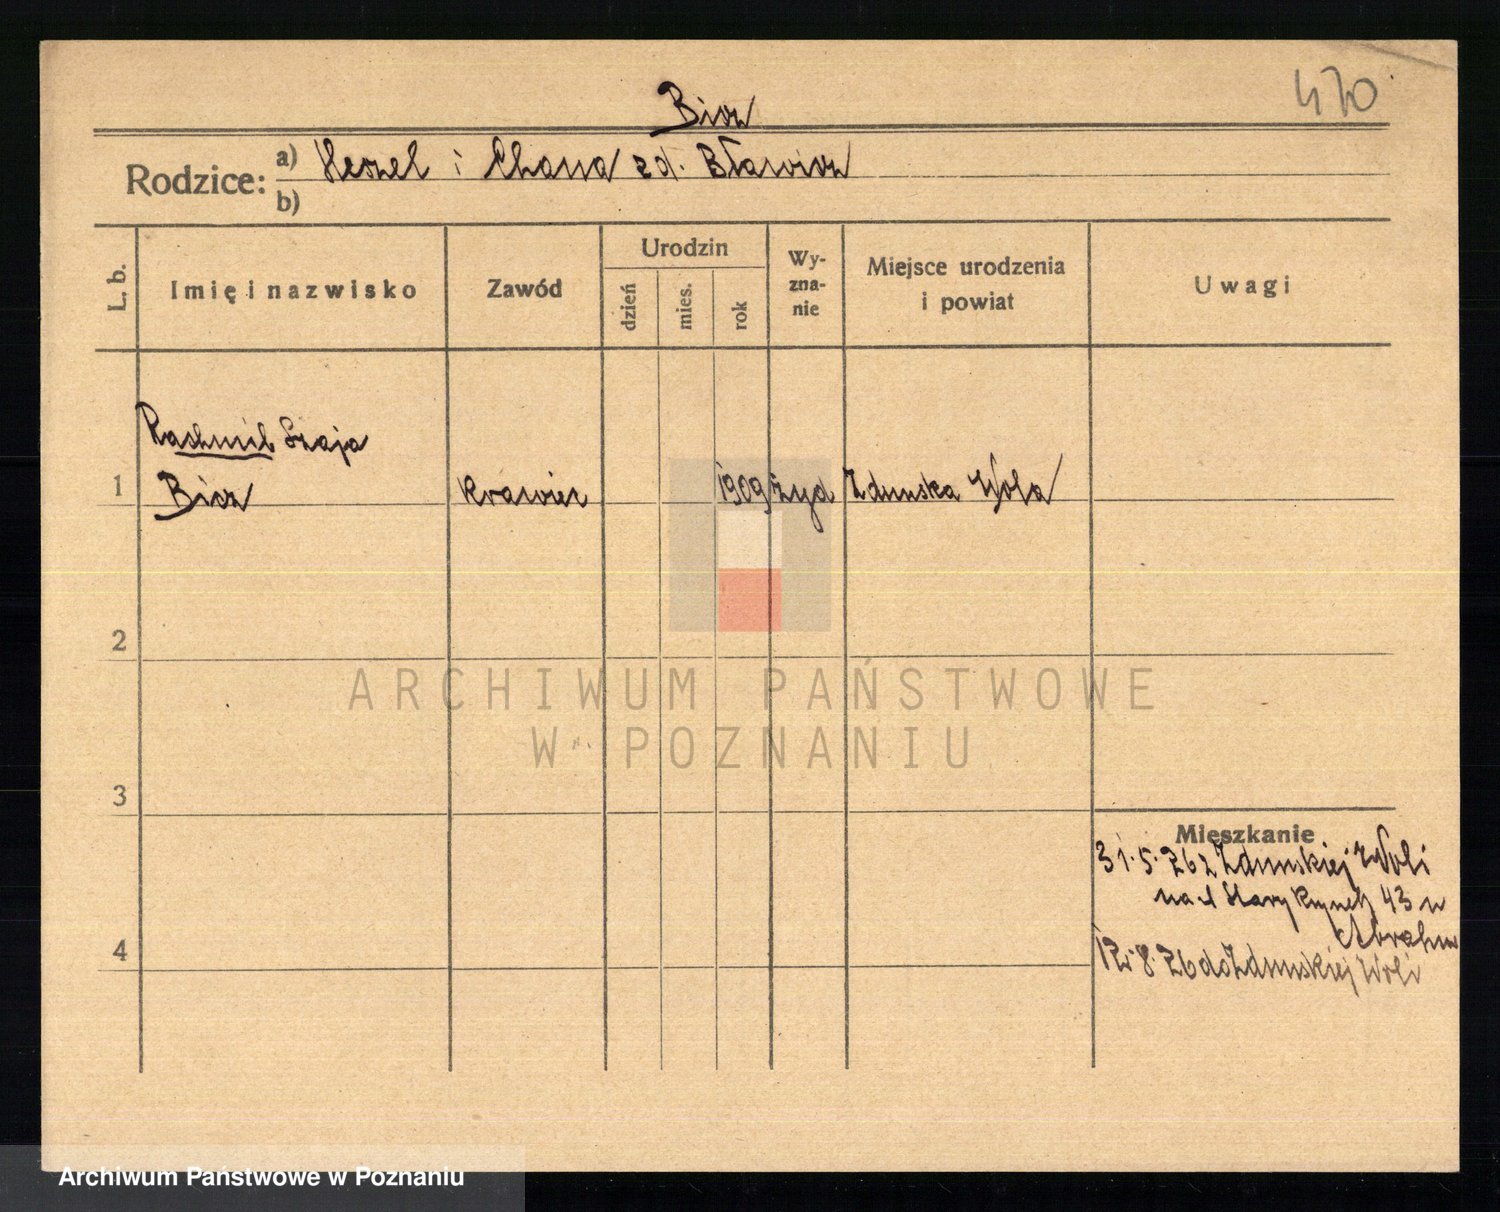 470
Bicz
Rodzice: a) Heszel i Chana zd. Bławicz
b)
L. b.
Imię i nazwisko
Zawód
Urodzin
dzień
mies.
rok
Wy-
zna-
nie
Miejsce urodzenia
i powiat
Uwagi
Rachmil Szaja
1 Bicz krawiec 1909 żyd Zduńska Wola
2
3
4
Mieszkanie
31.5.26 z Zduńskiej Woli
na Stary Rynek 43 u
Abrahm
12.8.26 do Zduńskiej Woli
ARCHIWUM PAŃSTWOWE
W POZNANIU
Archiwum Państwowe w Poznaniu